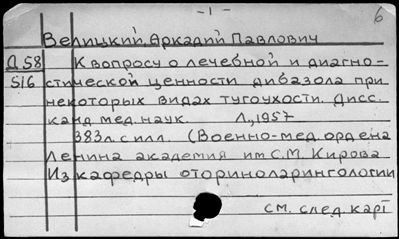 - 1 -
6
Велицкий, Аркадий Павлович
Д58 К вопросу о лечебной и диагно-
516 стической ценности дибазола при
некоторых видах тугоухости. Дисс.
канд мед. наук. Л., 1957
383 л. с илл. (Военно-мед. ордена
Ленина академия им С.М. Кирова
Из кафедры оториноларингологии
см. след карт